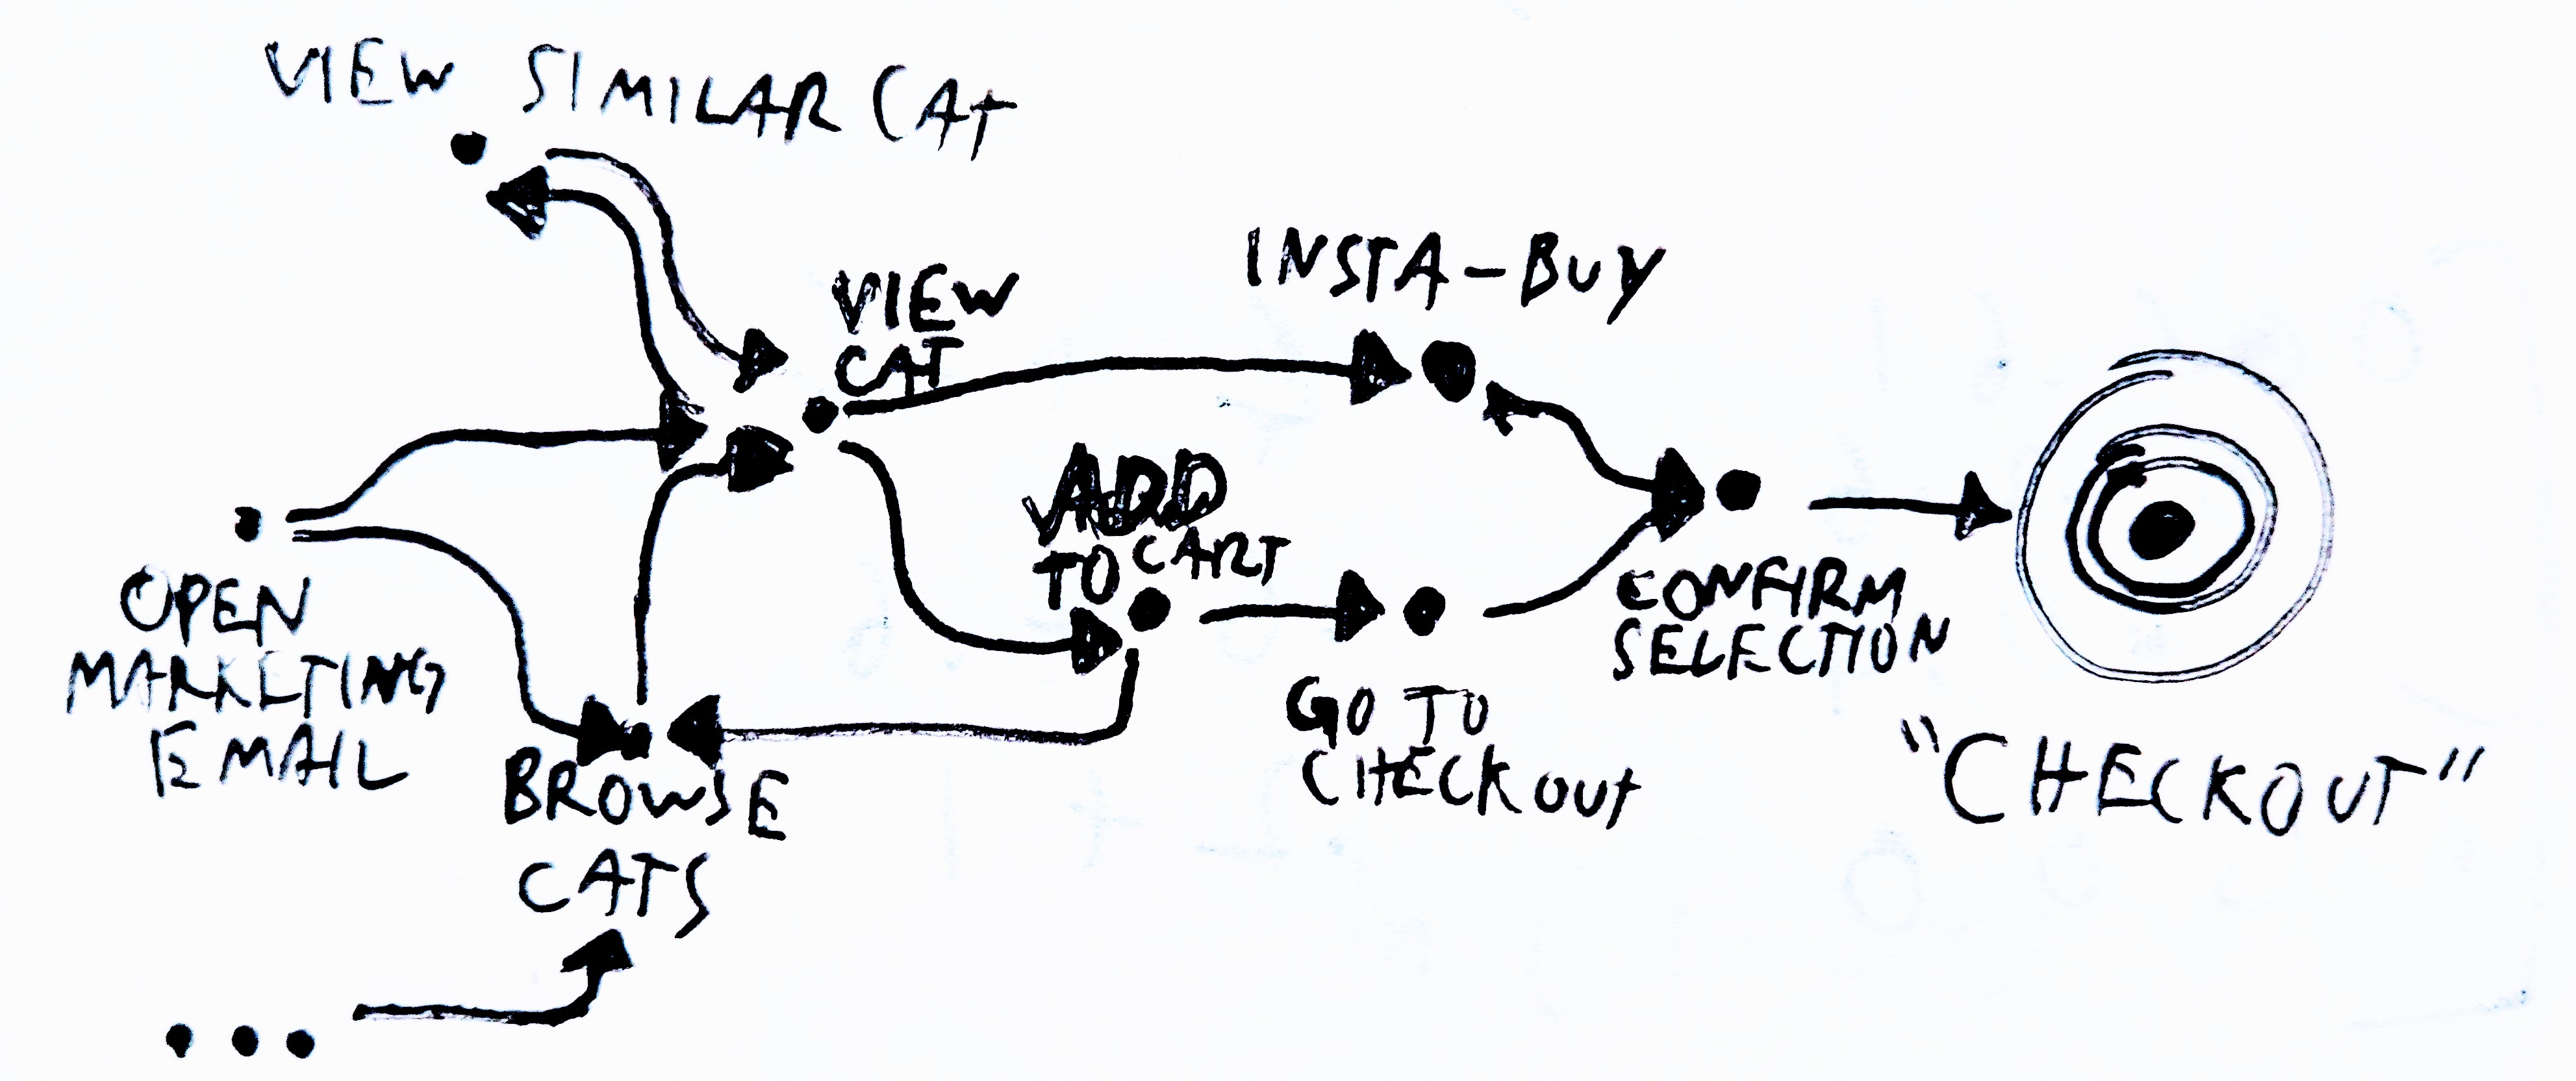 VIEW SIMILAR CAT
VIEW
CAT
INSTA-BUY
ADD
TO CART
OPEN
MARKETING
EMAIL
CONFIRM
SELECTION
GO TO
CHECKOUT
"CHECKOUT"
BROWSE
CATS
...